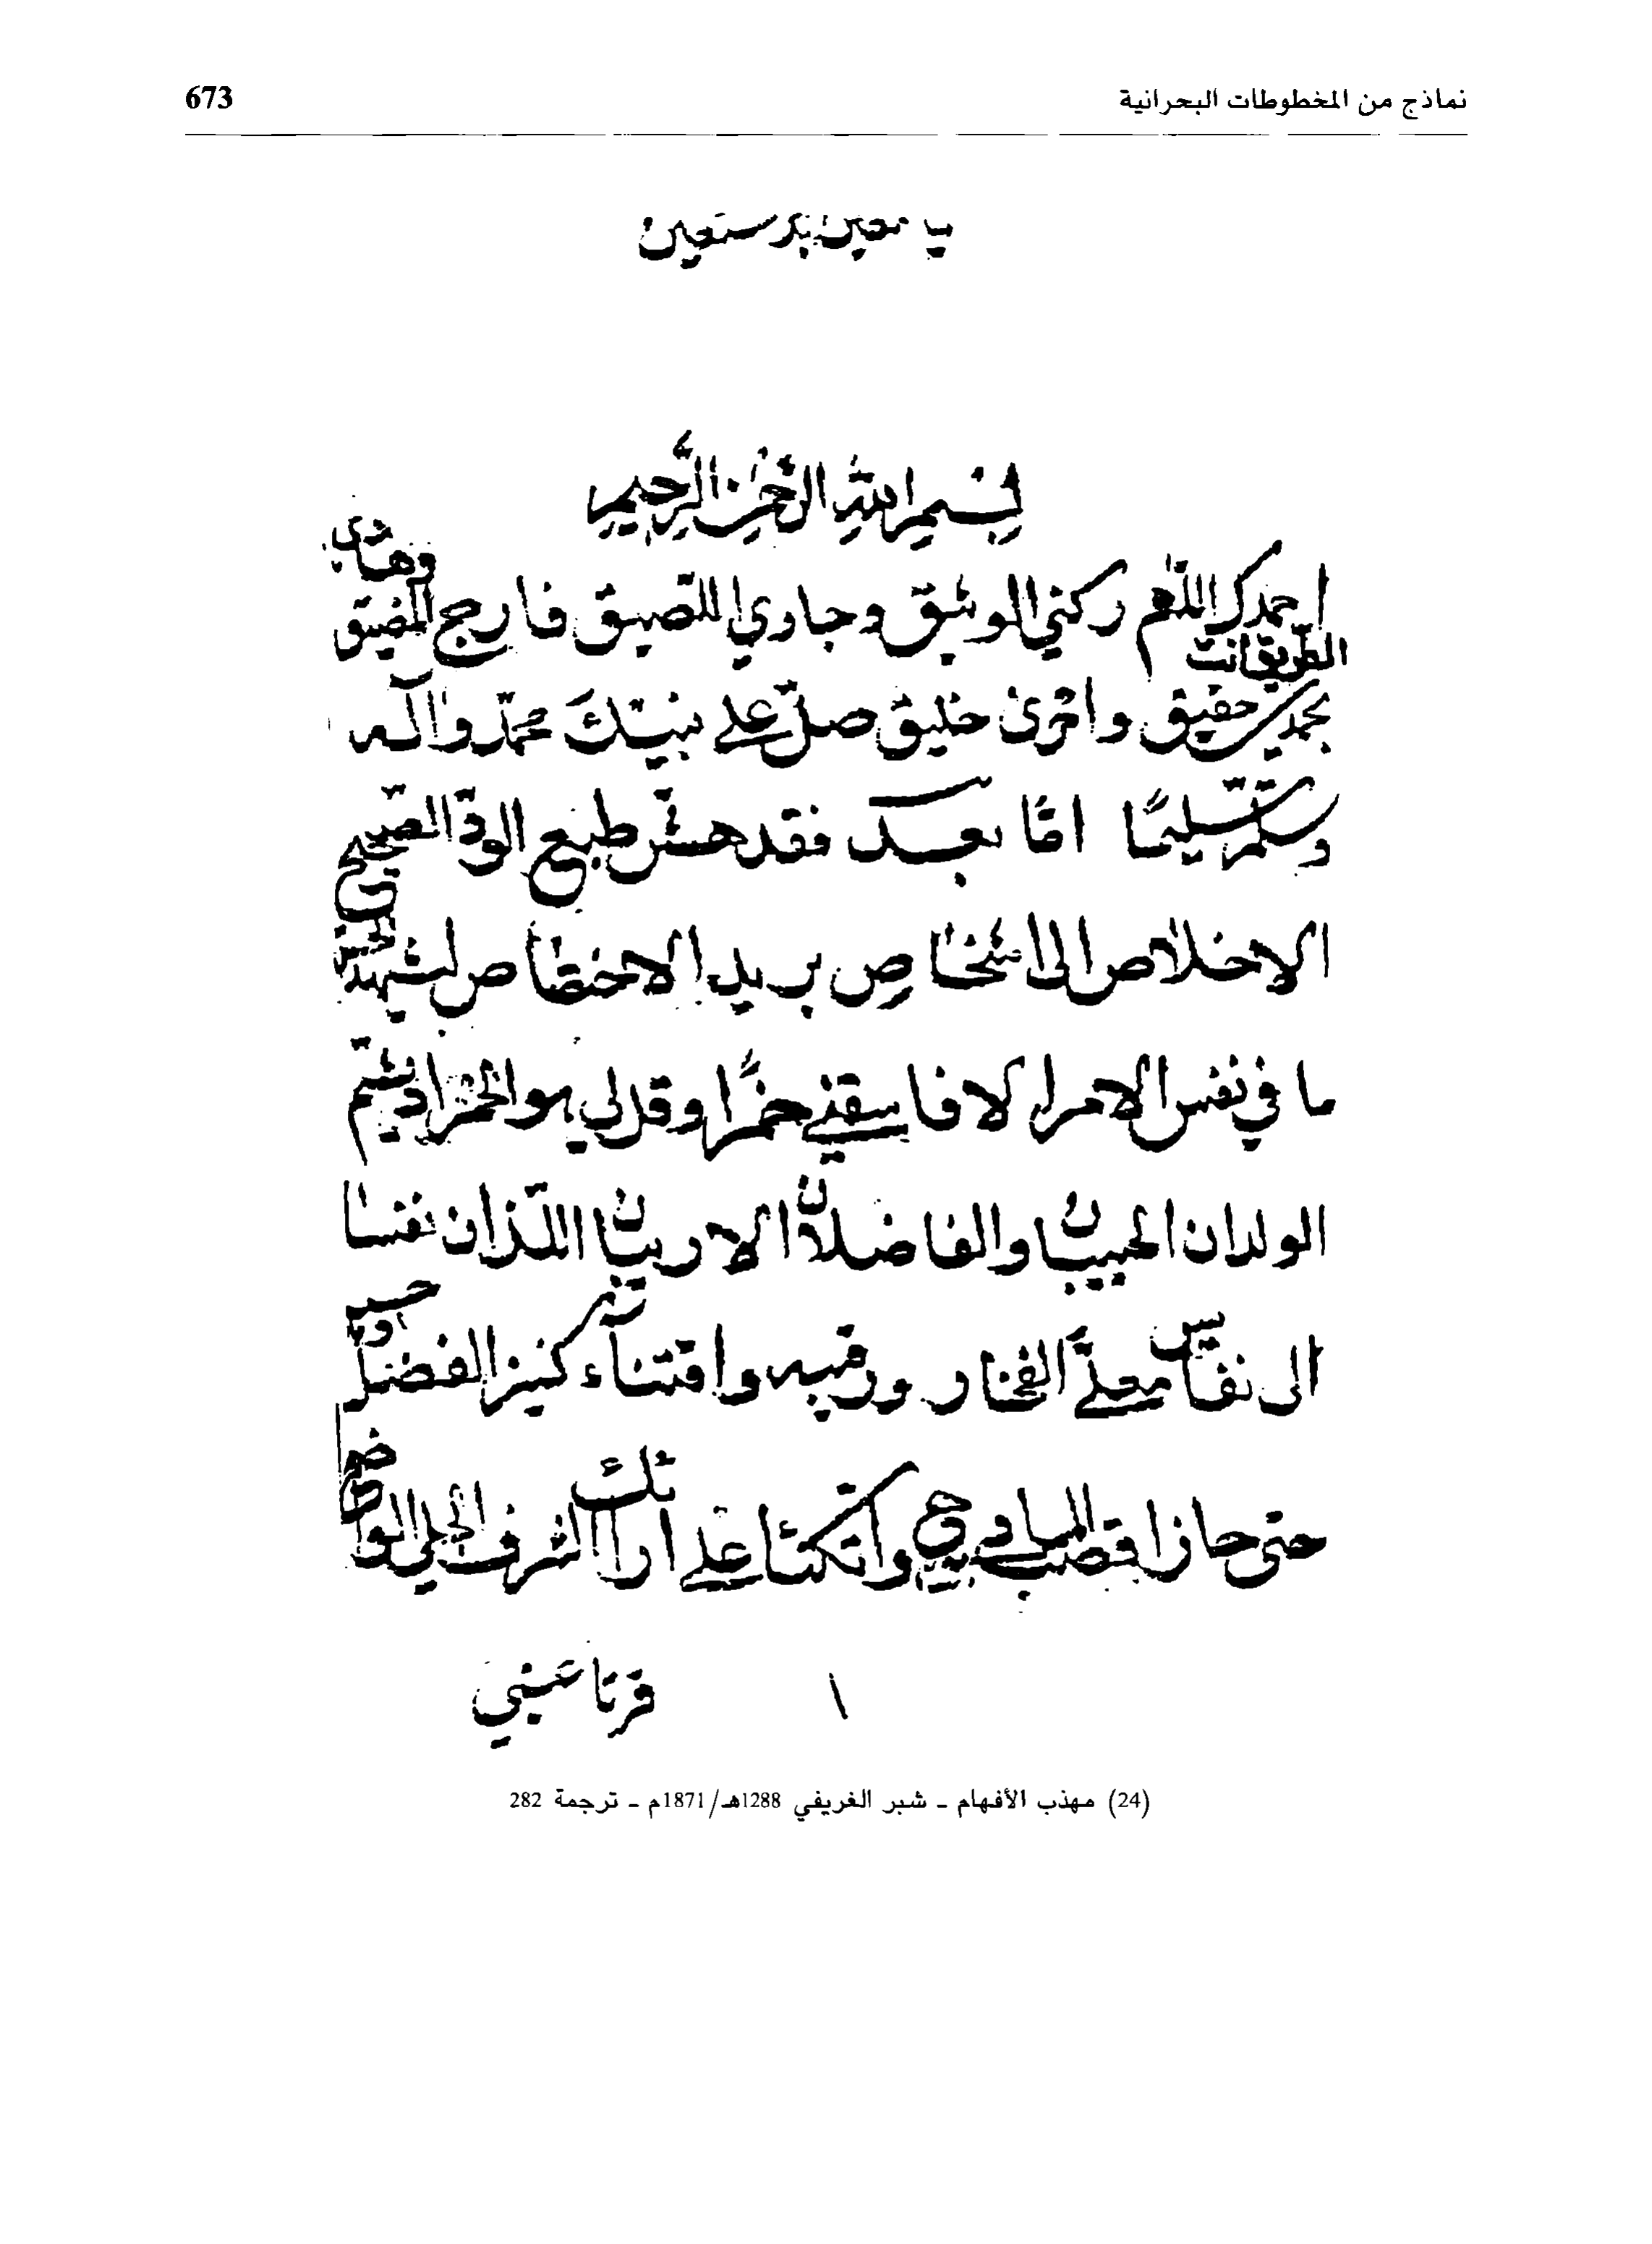 نماذج من المخطوطات البحرانية
673
يا معين بك نستعين
بسم الله الرحمن الرحيم
احمدك اللهم ركني الوثيق وجاري اللصيق فارج المضيق وهادي
الطريق انت بحمدك حقيق واحرى خليق صل على نبيك محمد واله
وسلم تسليما اما بعد فقد هش طبع الود الصحيح
الاخلاص الى اشخاص بريد الاختصاص لشهيدي
ما في نفس الامر الا فاسقني خمرا وقل لي هو الخمر اذ يشم
الولدان الحبيبان والفاضلان الاريبان اللذان نفسا
الى نفائس معلى الفخار ورقيه واقتناء كنز الفضل
حتى حازا قصب المبادي واتكئا على ارائك الشرف الجلي الواضح
١
قرتا عيني
(24) مهذب الأفهام ـ شبر الغريفي 1288هـ/1871م ـ ترجمة 282